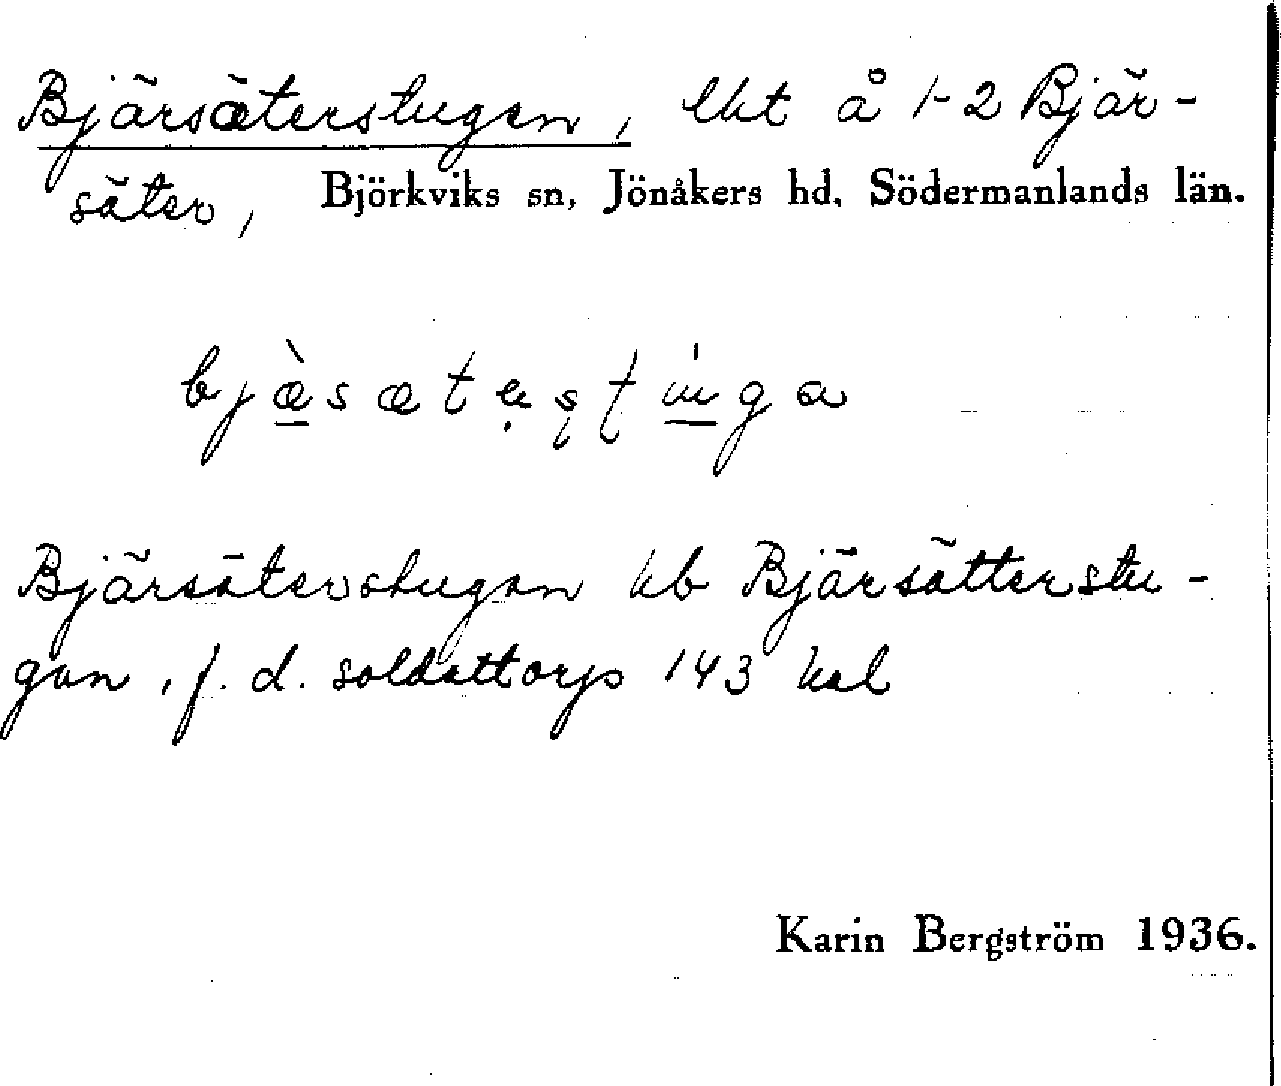 Bjärsäterstugan, lht å 1-2 Bjär-
säter, Björkviks sn, Jönåkers hd, Södermanlands län.
bjæ̀sætesṭúga
Bjärsäterstugan hb Bjärsätterstu-
gan, f. d. soldattorp 143 kal
Karin Bergström 1936.